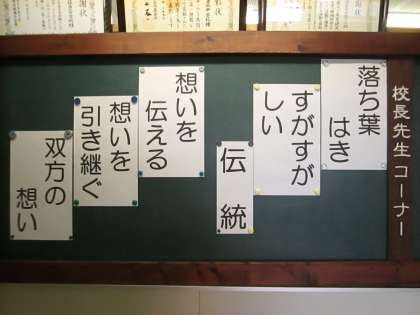 校長先生コーナー
落ち葉
はき
すがすが
しい
伝統
想いを
伝える
想いを
引き継ぐ
双方の
想い